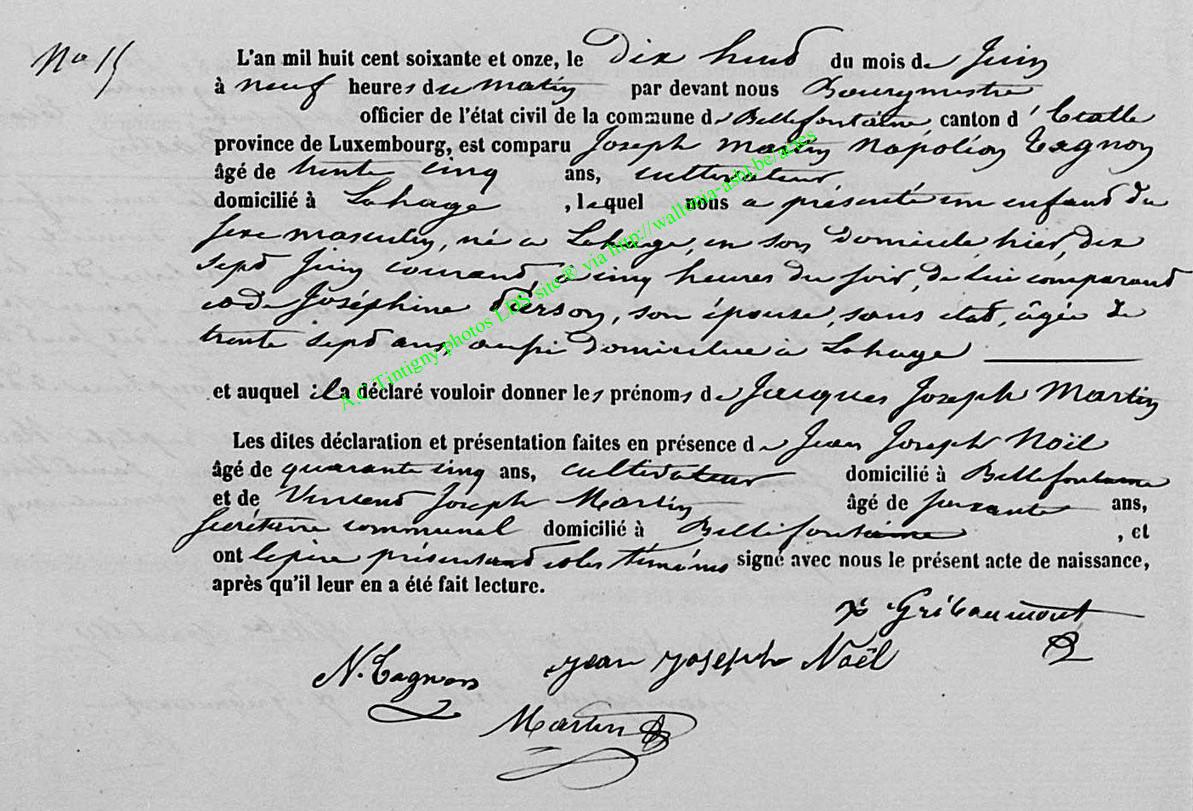 No 15
L'an mil huit cent soixante et onze, le Dix huit du mois de Juin
à neuf heures du matin par devant nous Bourgmestre
officier de l'état civil de la commune de Bellefontaine, canton d'Etalle
province de Luxembourg, est comparu Joseph Martin Napoléon Tagnon
âgé de trente cinq ans, cultivateur
domicilié à Lahage, lequel nous a présenté un enfant du
sexe masculin, né à Lahage, en son domicile hier dix
sept Juin courant, à cinq heures du soir, de lui comparant
et de Joséphine son épouse, sans état, âgée de
trente sept ans, aussi domiciliée à Lahage
et auquel il a déclaré vouloir donner les prénoms de Jacques Joseph Martin
Les dites déclaration et présentation faites en présence de Jean Joseph Noël
âgé de quarante cinq ans, cultivateur domicilié à Bellefontaine
et de Vincent Joseph Martin âgé de soixante ans,
secrétaire communal domicilié à Bellefontaine, et
ont le père présentant et les témoins signé avec nous le présent acte de naissance,
après qu'il leur en a été fait lecture.
Gribaumont
N. Tagnon
Jean Joseph Noël
Martin
A.C. Tintigny photos LDS site ® via http://wallonia-asbl.be/actes